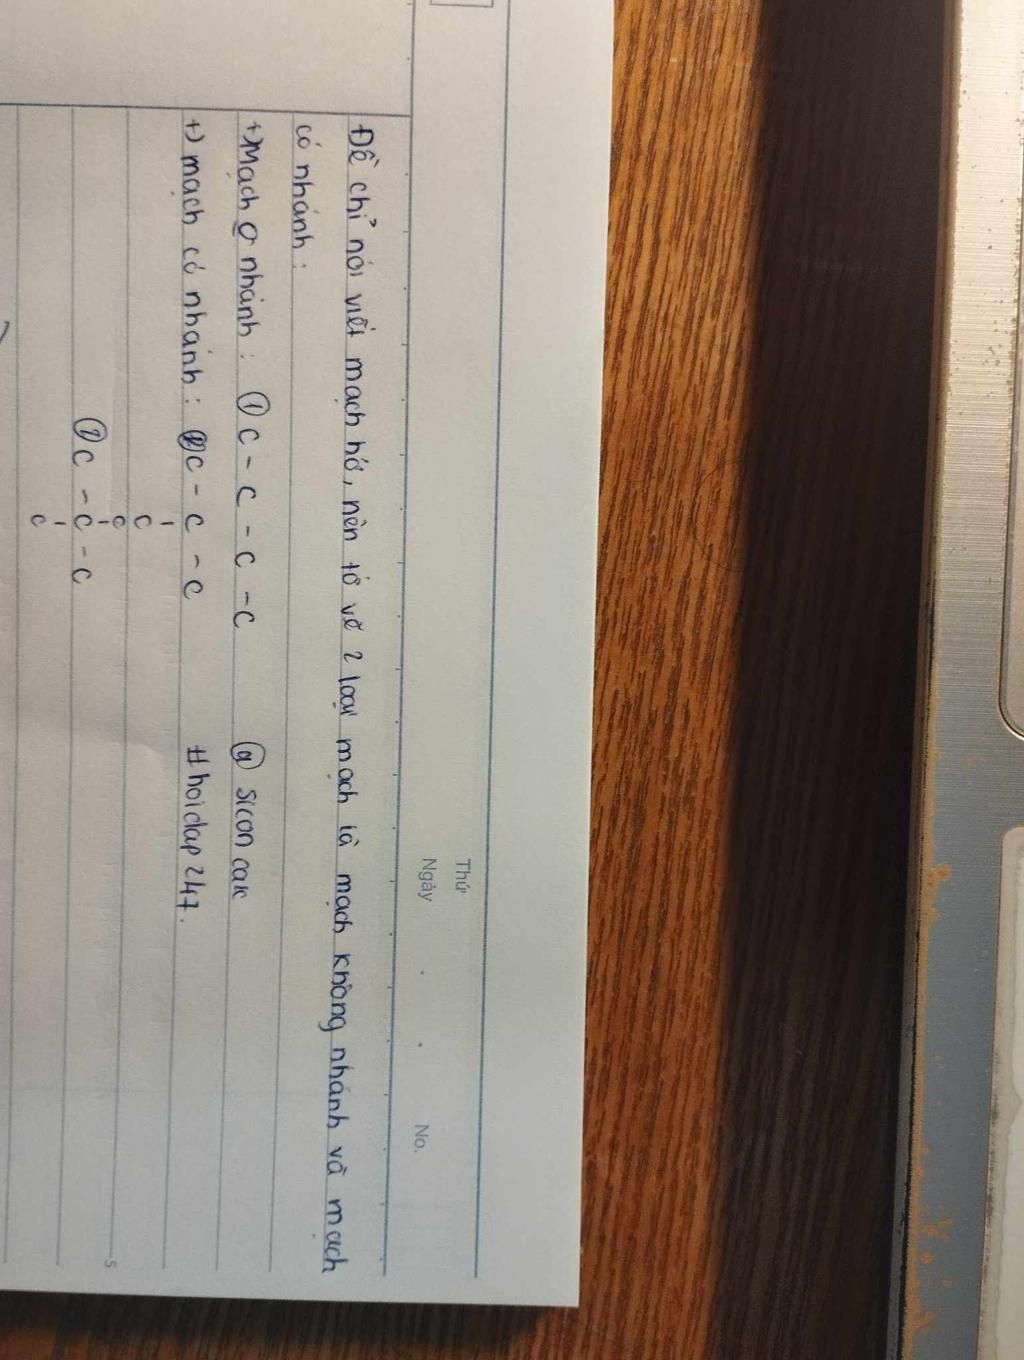 Thứ
Ngày . . No.
Đề chỉ nói viết mạch hở, nên tớ vẽ 2 loại mạch là mạch không nhánh và mạch
có nhánh :
+) Mạch 0 nhánh : ① C - C - C - C @ sicon caic
+) mạch có nhánh : ② C - C - C # hoidap 247.
C
C
② C - C - C
C
5